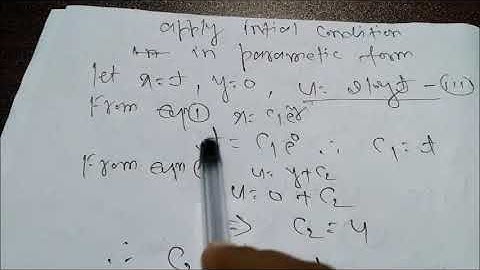 apply initial condition
in parametic form
let x=t, y=0, u= 2logt - (iii)
From eqn ① x=c₁eʸ
t = c₁e⁰ ∴ c₁=t
From eqn u= y+c₂
u= 0+c₂
⇒ c₂=u
∴ c₂